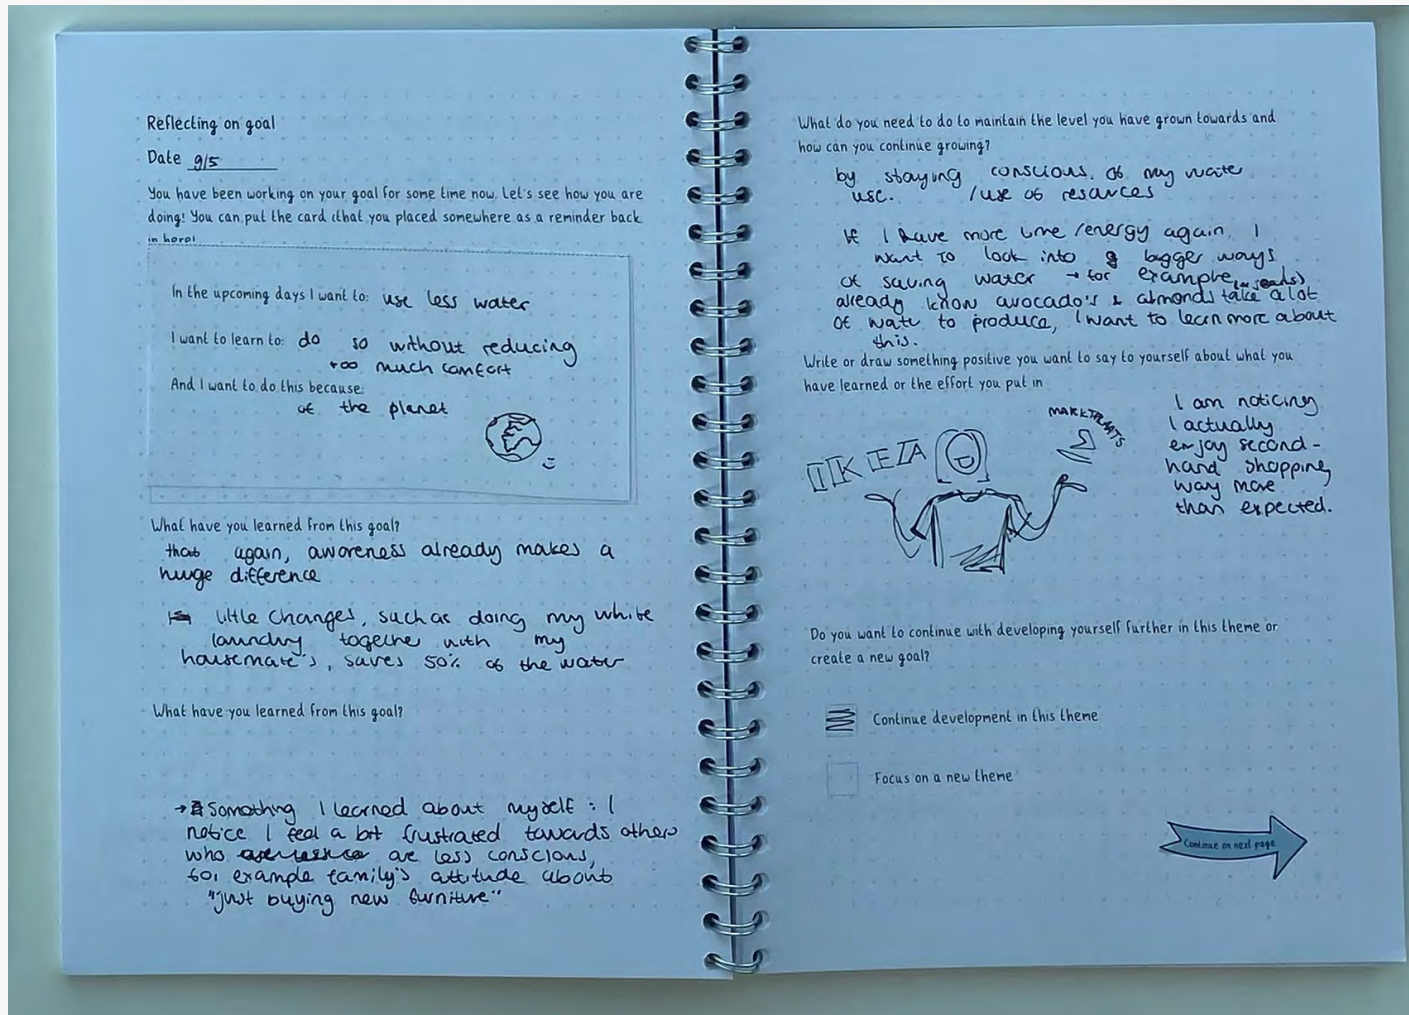 Reflecting on goal
Date 9/5
You have been working on your goal for some time now. Let's see how you are
doing! You can put the card (that you placed somewhere as a reminder back
in here!
In the upcoming days I want to: use less water
I want to learn to: do so without reducing
too much comfort
And I want to do this because:
of the planet
What have you learned from this goal?
that again, awareness already makes a
huge difference
little changes, such as doing my white
laundry together with my
housemate's, saves 50% of the water
What have you learned from this goal?
→ Something I learned about myself: I
notice I feel a bit frustrated towards others
who are less conscious,
for example family's attitude about
"just buying new furniture"
What do you need to do to maintain the level you have grown towards and
how can you continue growing?
by staying conscious of my water
use. /use of resources
If I have more time/energy again, I
want to look into bigger ways
of saving water → for example, I
already know avocado's & almonds take a lot
of water to produce, I want to learn more about
this.
Write or draw something positive you want to say to yourself about what you
have learned or the effort you put in
IKEA
MARKTPLAATS
I am noticing
I actually
enjoy second-
hand shopping
way more
than expected.
Do you want to continue with developing yourself further in this theme or
create a new goal?
Continue development in this theme
Focus on a new theme
Continue on next page